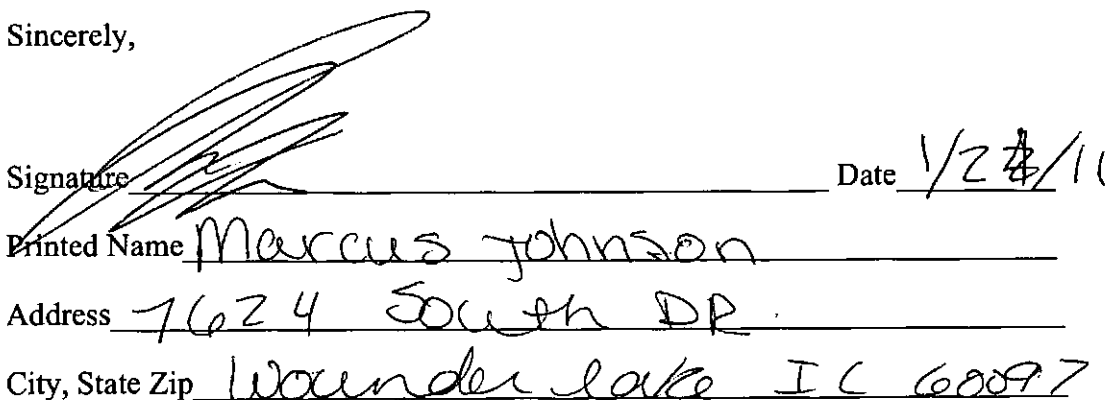 Sincerely,
Signature Date 1/2 /11
Printed Name Marcus Johnson
Address 7624 South DR.
City, State Zip Wounder lake IL 60097